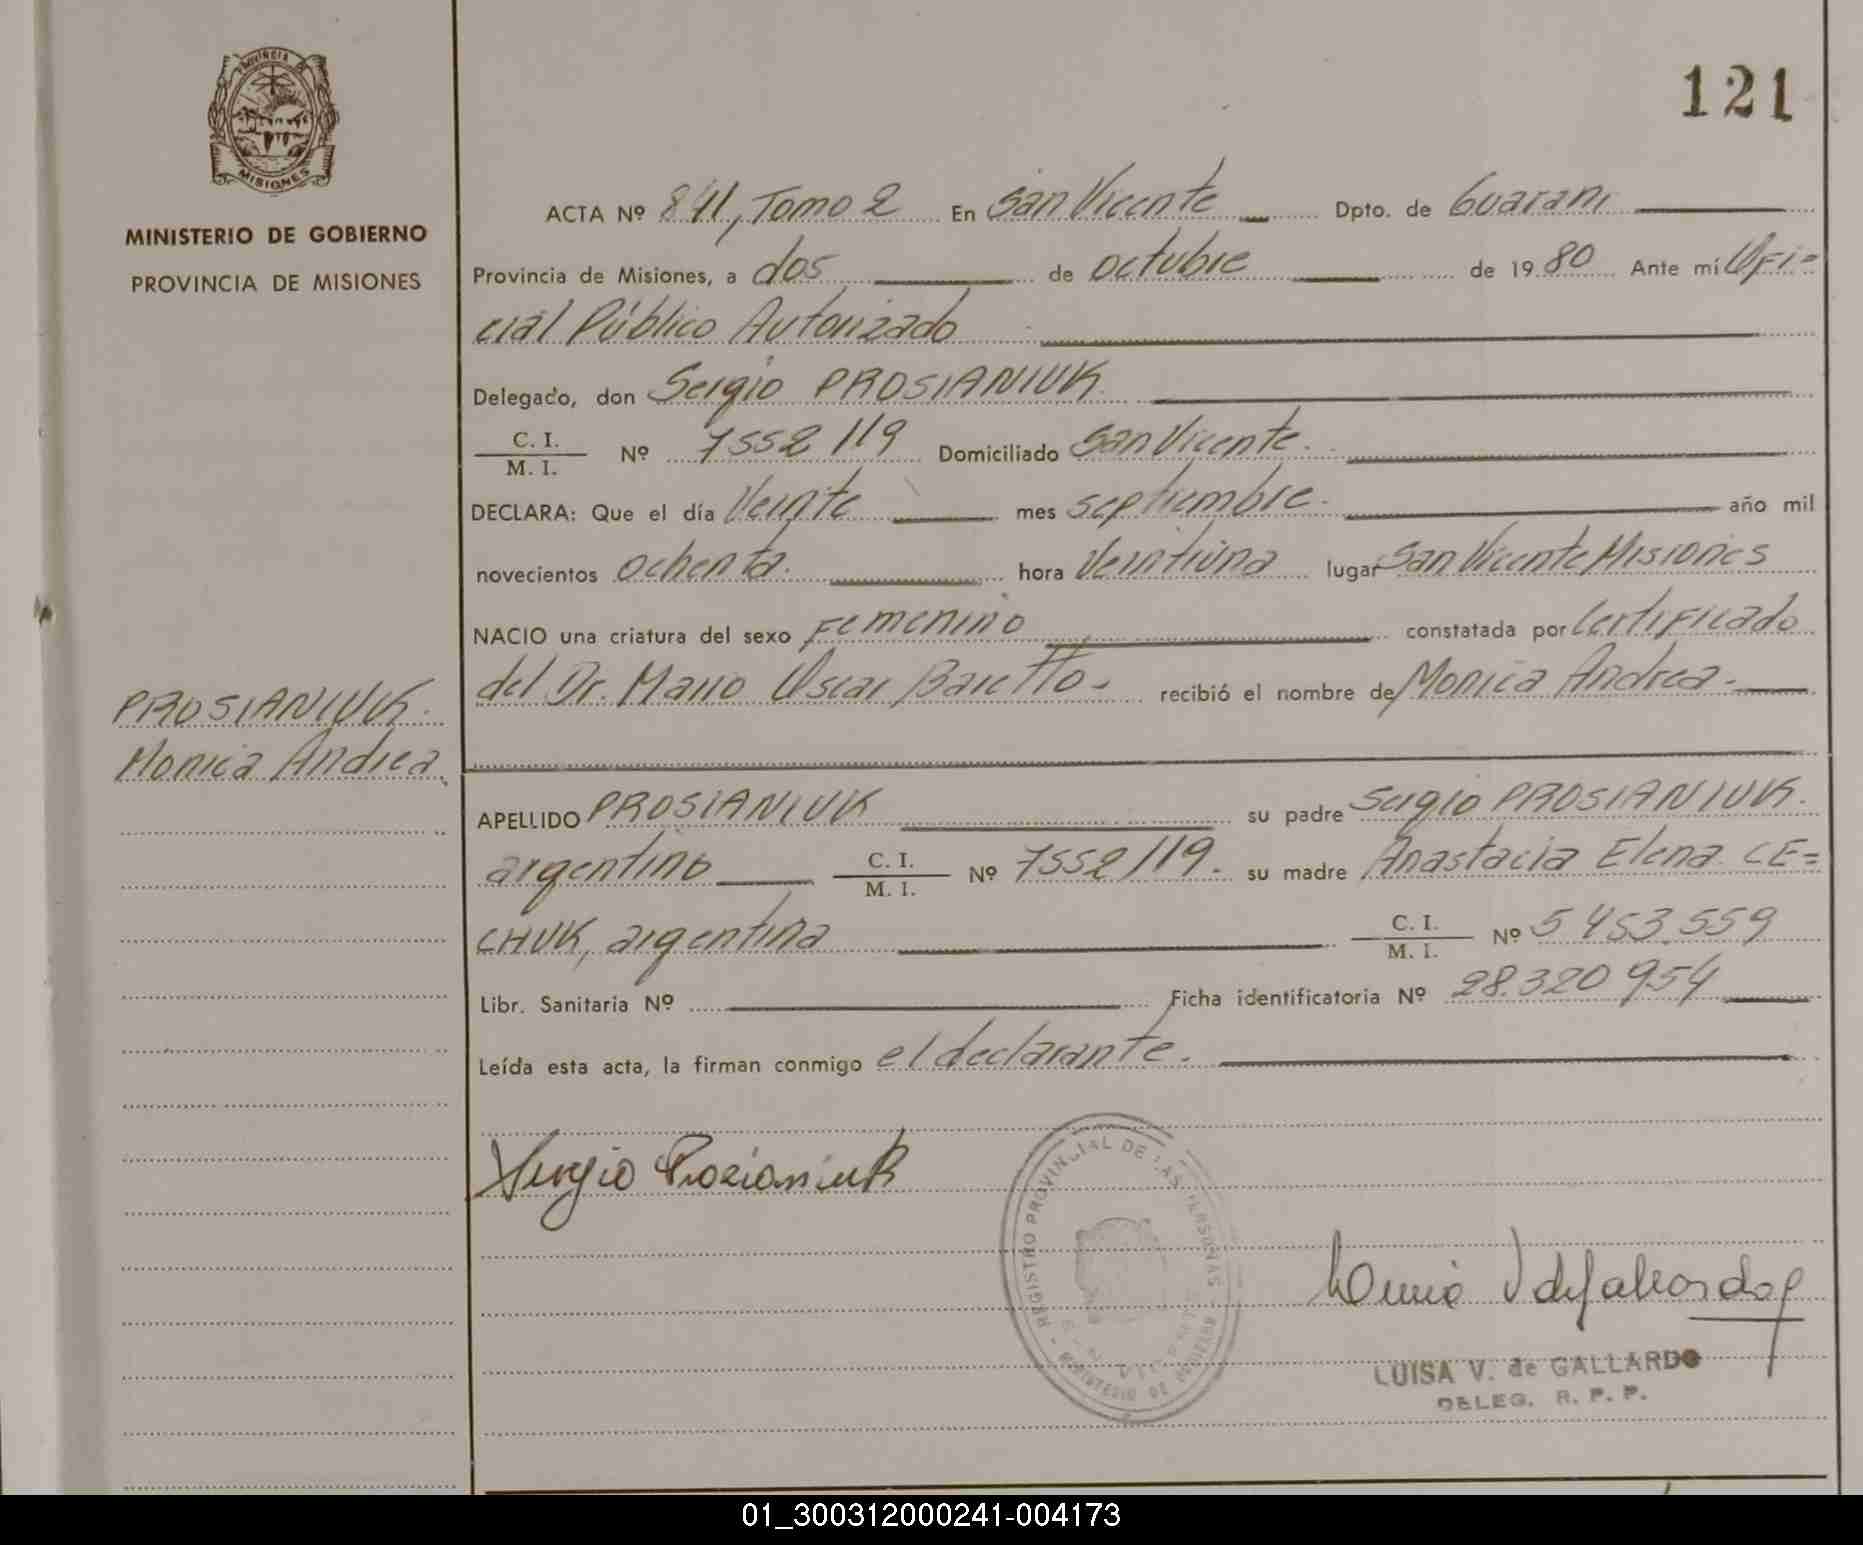 PROVINCIA DE
MISIONES
MINISTERIO DE GOBIERNO
PROVINCIA DE MISIONES
PROSIANIUK.
Monica Andrea
121
ACTA Nº 841, Tomo 2 En San Vicente Dpto. de Guarani
Provincia de Misiones, a dos de octubre de 1980 Ante mí Ofi=
cial Público Autorizado
Delegado, don Sergio PROSIANIUK
C. I.
M. I. Nº 7552119 Domiciliado San Vicente.
DECLARA: Que el día Veinte mes septiembre. año mil
novecientos ochenta. hora Veintiuna lugar San Vicente Misiones
NACIO una criatura del sexo Femenino constatada por Certificado
del Dr. Mario Oscar Baretto- recibió el nombre de Monica Andrea-
APELLIDO PROSIANIUK su padre Sergio PROSIANIUK.
argentino C. I.
M. I. Nº 7552119. su madre Anastacia Elena CE=
CHUK, argentina C. I.
M. I. Nº 5453.559
Libr. Sanitaria Nº Ficha identificatoria Nº 28.320954
Leída esta acta, la firman conmigo el declarante.
Sergio Prosianiuk
REGISTRO PROVINCIAL DE LAS PERSONAS
MINISTERIO DE GOBIERNO
LUISA V. de GALLARDO
DELEG. R. P. P.
01_300312000241-004173